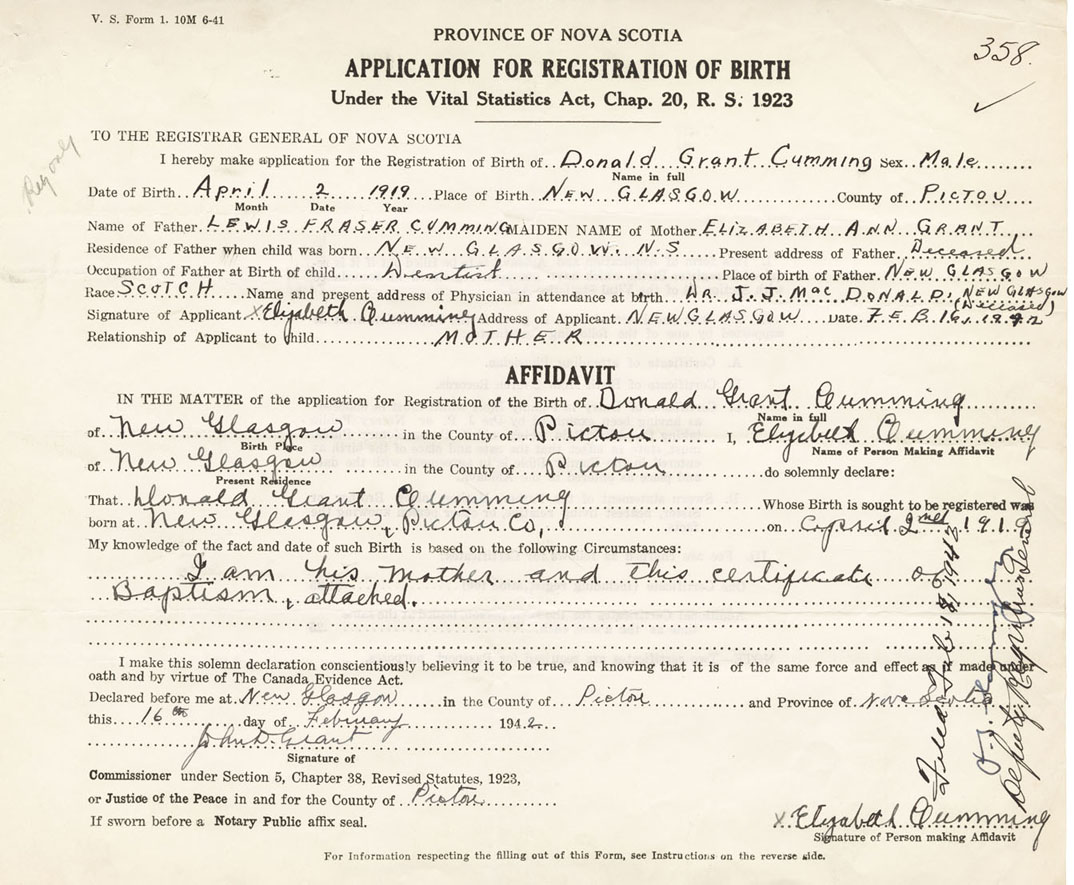 V. S. Form 1. 10M 6-41
358.
PROVINCE OF NOVA SCOTIA
APPLICATION FOR REGISTRATION OF BIRTH
Under the Vital Statistics Act, Chap. 20, R. S. 1923
Reg only
TO THE REGISTRAR GENERAL OF NOVA SCOTIA
I hereby make application for the Registration of Birth of Donald Grant Cumming Sex Male
Name in full
Date of Birth April 2 1919 Place of Birth NEW GLASGOW County of PICTOU
Month Date Year
Name of Father LEWIS FRASER CUMMING MAIDEN NAME of Mother ELIZABETH ANN GRANT
Residence of Father when child was born NEW GLASGOW. N.S Present address of Father Deceased
Occupation of Father at Birth of child Dentist Place of birth of Father NEW GLASGOW
Race SCOTCH Name and present address of Physician in attendance at birth DR. J. J. MacDONALD, NEW GLASGOW
(Deceased)
Signature of Applicant x Elizabeth Cumming Address of Applicant NEW GLASGOW Date FEB. 16, 1942
Relationship of Applicant to child MOTHER
AFFIDAVIT
IN THE MATTER of the application for Registration of the Birth of Donald Grant Cumming
Name in full
of New Glasgow in the County of Pictou I, Elizabeth Cumming
Birth Place Name of Person Making Affidavit
of New Glasgow in the County of Pictou do solemnly declare:
Present Residence
That Donald Grant Cumming Whose Birth is sought to be registered was
born at New Glasgow, Pictou Co, on April 2nd 1919
My knowledge of the fact and date of such Birth is based on the following Circumstances:
I am his mother and this certificate of
Baptism, attached.
I make this solemn declaration conscientiously believing it to be true, and knowing that it is of the same force and effect as if made under
oath and by virtue of The Canada Evidence Act.
Declared before me at New Glasgow in the County of Pictou and Province of Nova Scotia
this 16th day of February 1942
John D. Grant
Signature of
Commissioner under Section 5, Chapter 38, Revised Statutes, 1923,
or Justice of the Peace in and for the County of Pictou
If sworn before a Notary Public affix seal.
x Elizabeth Cumming
Signature of Person making Affidavit
Filed Feb 18, 1942
Deputy Registrar General
For Information respecting the filling out of this Form, see Instructions on the reverse side.